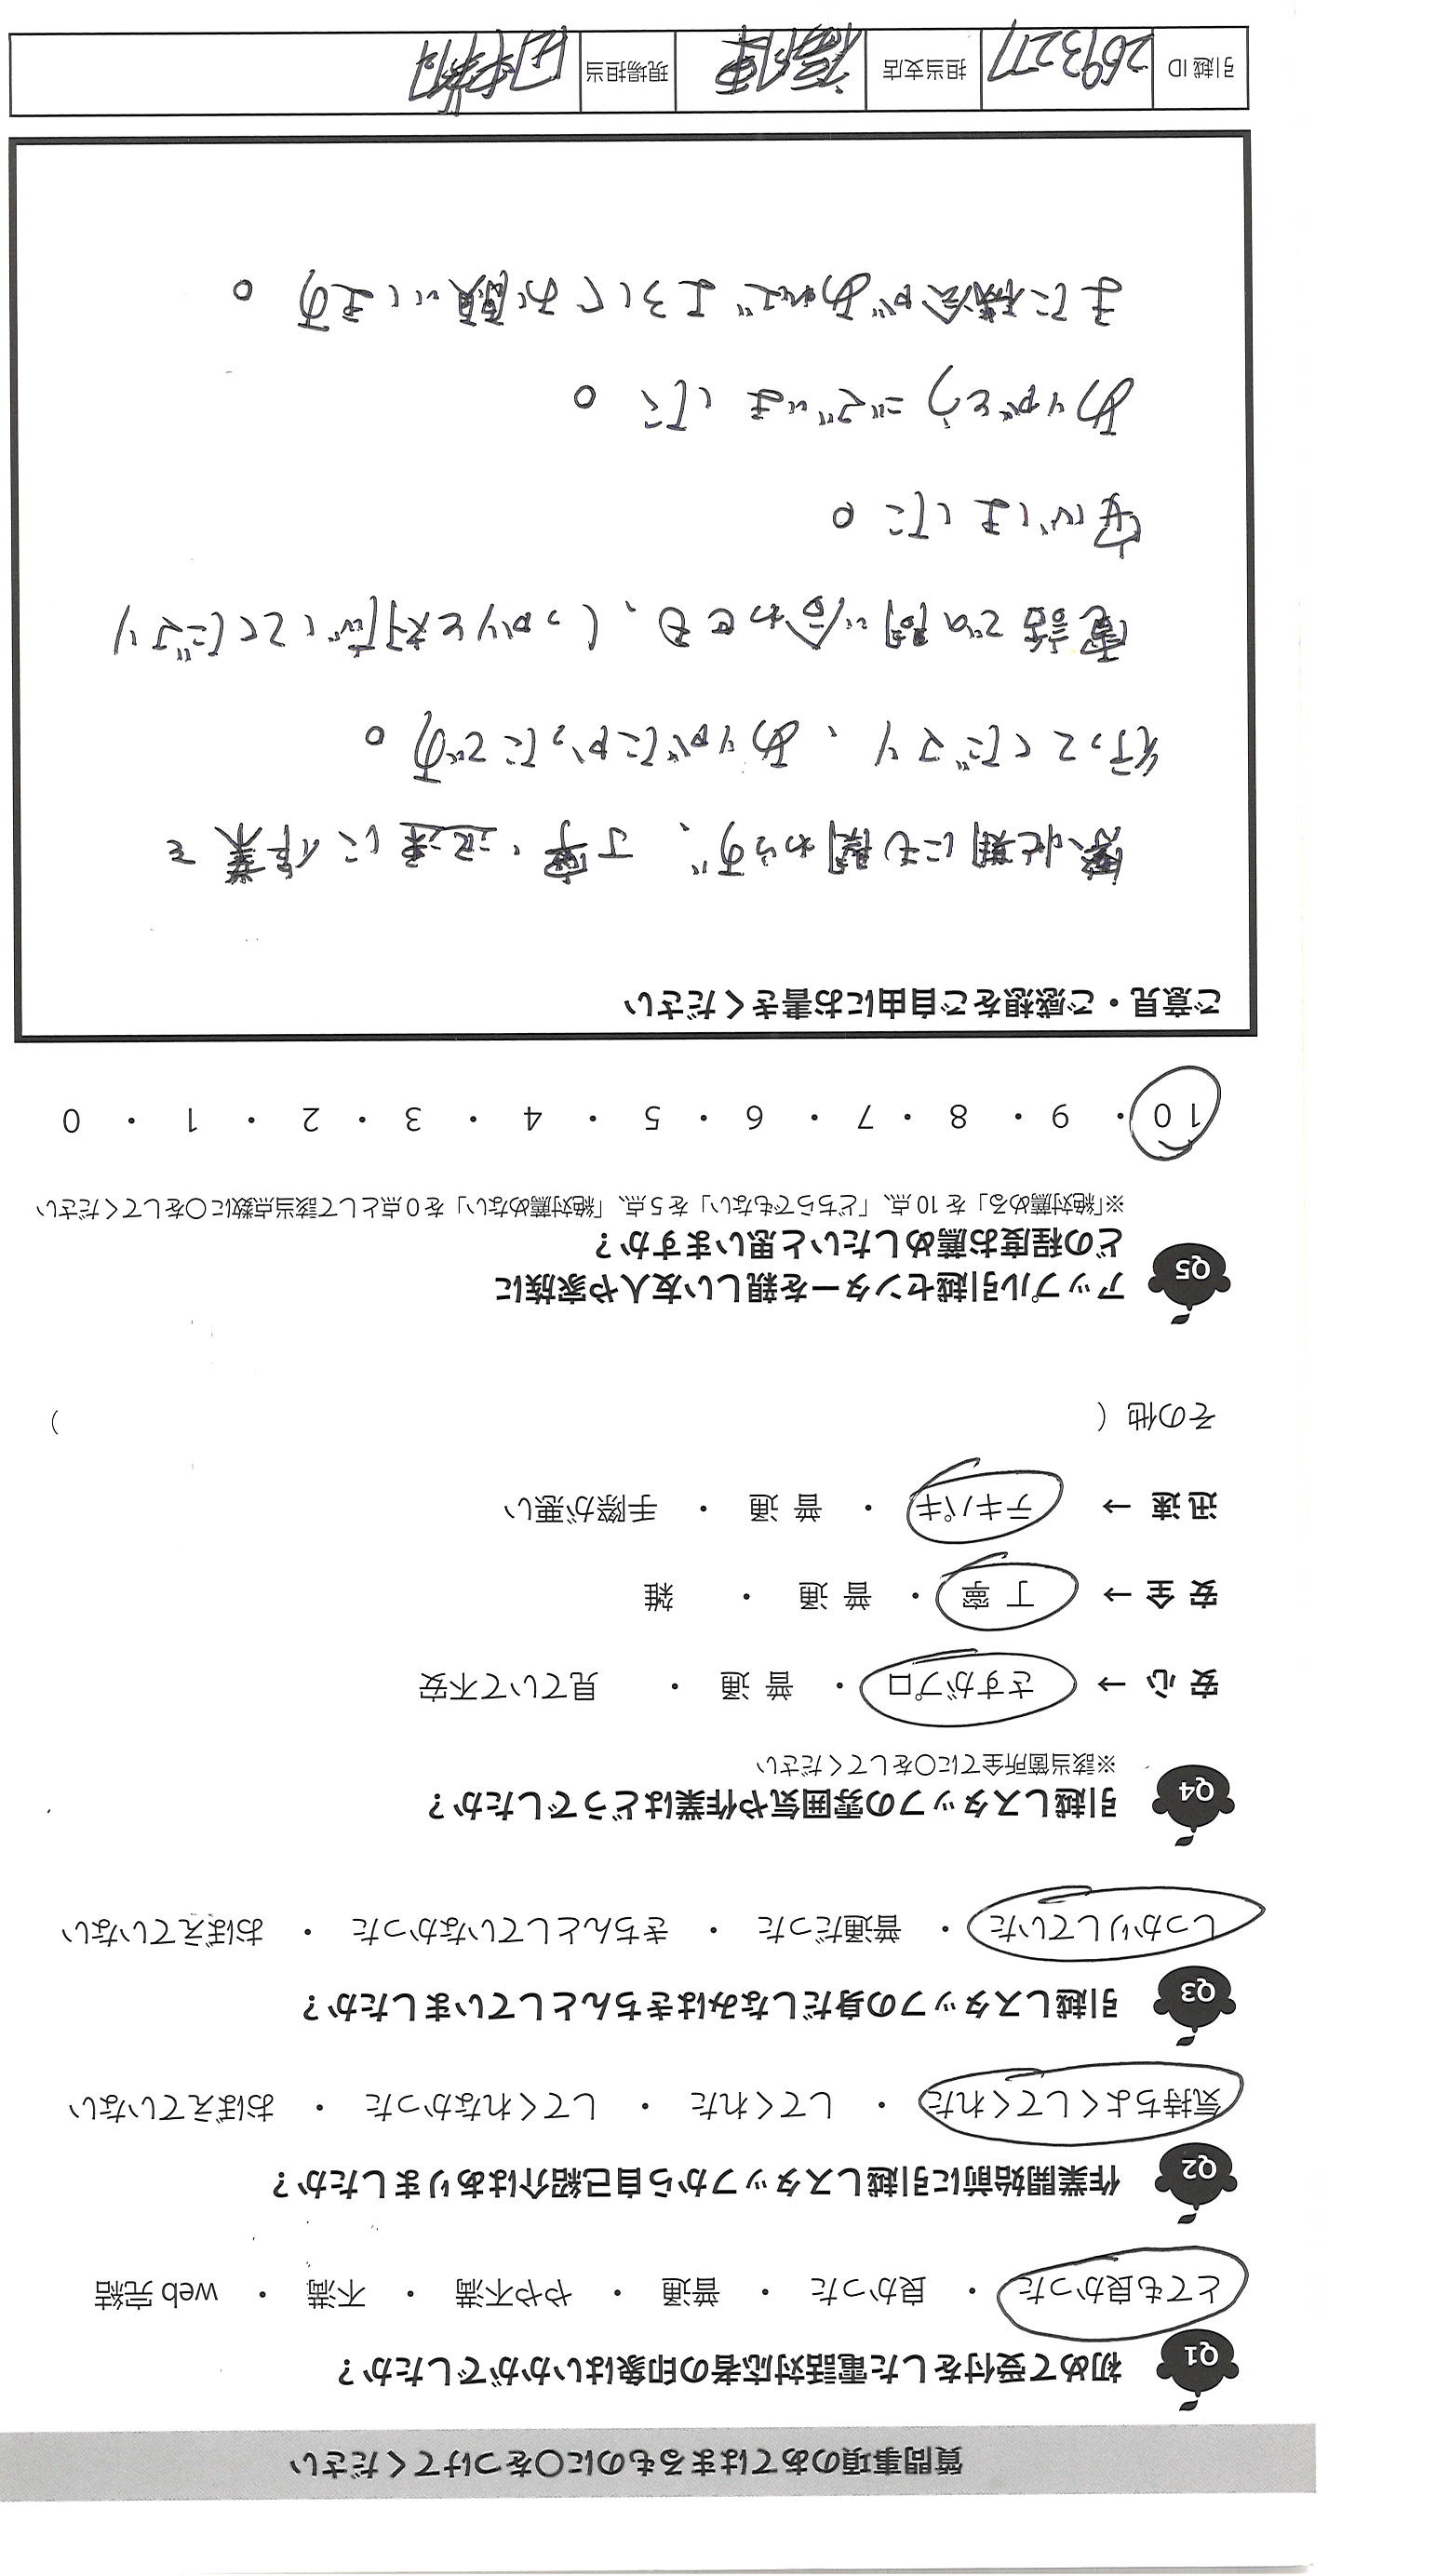 質問事項のあてはまるものに○をつけてください
Q1 初めて受付をした電話対応者の印象はいかがでしたか？
とても良かった ・ 良かった ・ 普通 ・ やや不満 ・ 不満 ・ web 完結
Q2 作業開始前に引越しスタッフから自己紹介はありましたか？
気持ちよくしてくれた ・ してくれた ・ してくれなかった ・ おぼえていない
Q3 引越しスタッフの身だしなみはきちんとしていましたか？
しっかりしていた ・ 普通だった ・ きちんとしていなかった ・ おぼえていない
Q4 引越しスタッフの雰囲気や作業はどうでしたか？
※該当箇所全てに○をしてください
安 心 → さすがプロ ・ 普 通 ・ 見ていて不安
安 全 → 丁 寧 ・ 普 通 ・ 雑
迅 速 → テキパキ ・ 普 通 ・ 手際が悪い
その他（ ）
Q5 アップル引越センターを親しい友人や家族に
どの程度お薦めしたいと思いますか？
※「絶対薦める」を 10 点、「どちらでもない」を 5 点、「絶対薦めない」を 0 点として該当点数に○をしてください
10 ・ 9 ・ 8 ・ 7 ・ 6 ・ 5 ・ 4 ・ 3 ・ 2 ・ 1 ・ 0
ご意見・ご感想をご自由にお書きください
繁忙期にも関わらず、丁寧・迅速に作業を
行ってくださり、ありがたかったです。
電話での問い合わせも、しっかりと対応してくださり
安心しました。
ありがとうございました。
また機会があればよろしくお願いします。
引越 ID 2693277 担当支店 現場担当